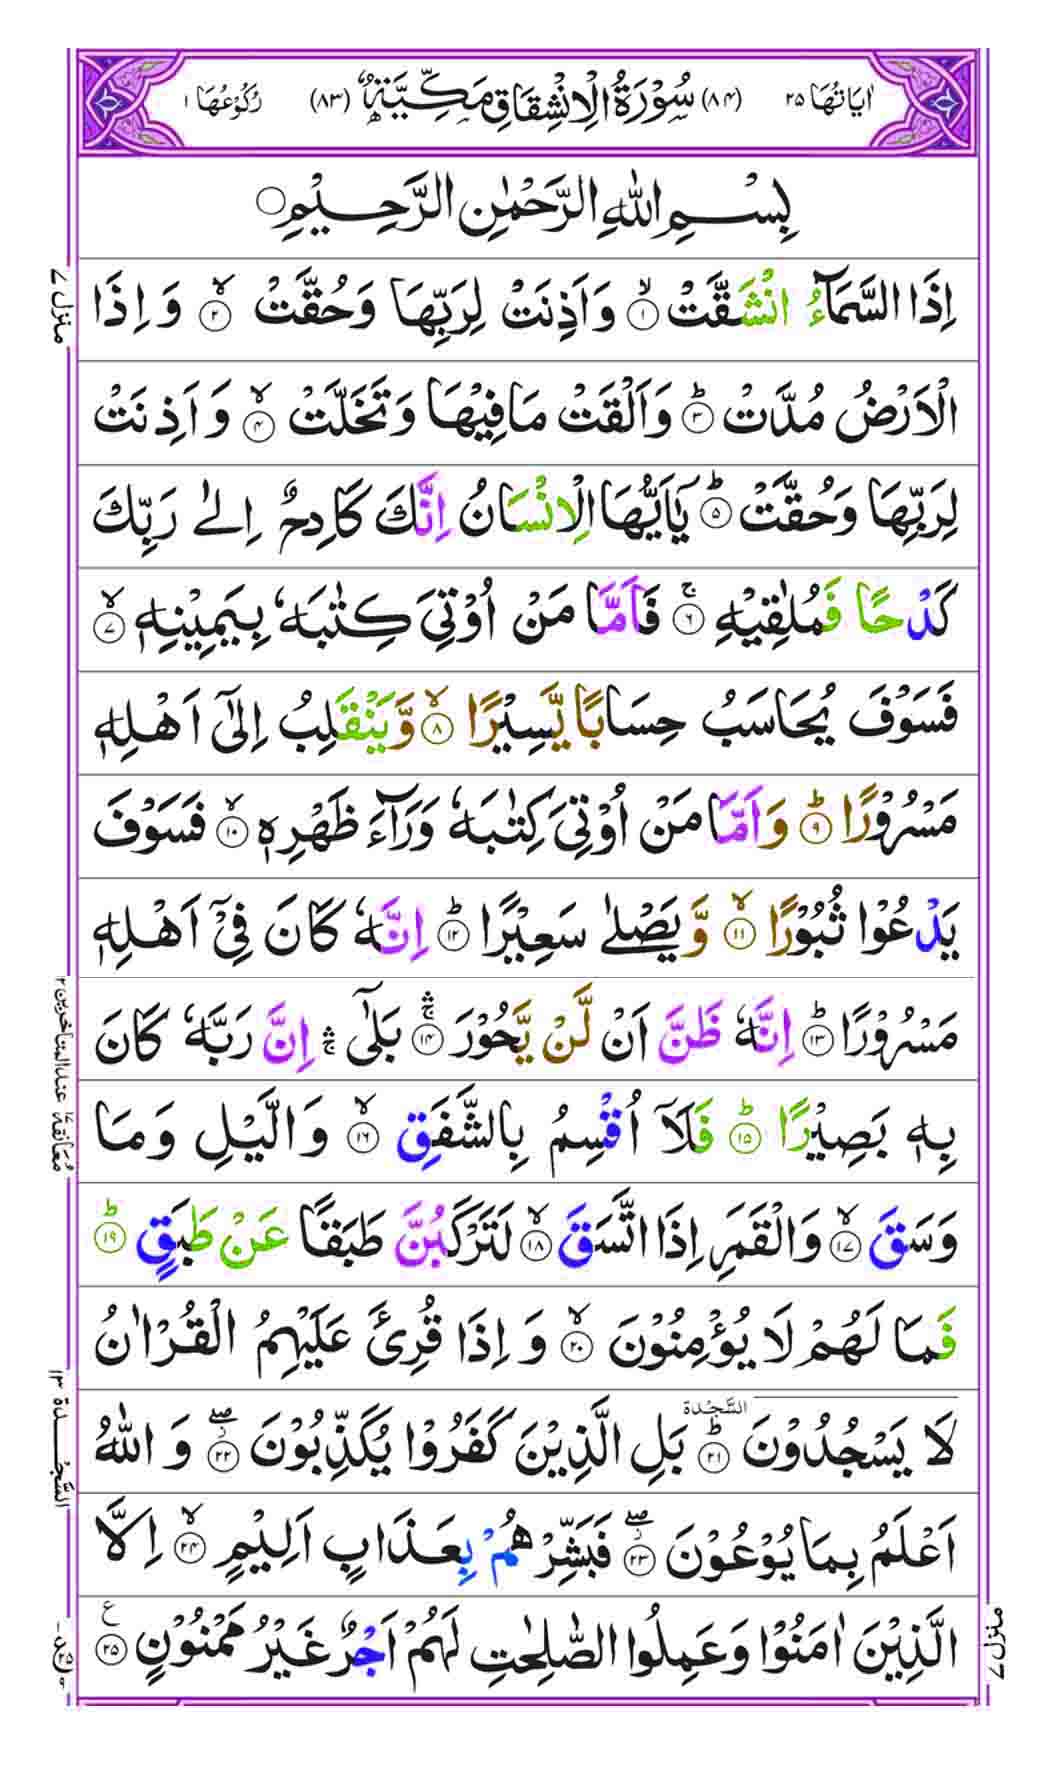 اٰيَاتُهَا ٢٥ (٨٤) سُوْرَةُ الْاِنْشِقَاقِ مَكِّيَّةٌ (٨٣) رُكُوْعُهَا ١
بِسْمِ اللّٰهِ الرَّحْمٰنِ الرَّحِيْمِ
اِذَا السَّمَآءُ انْشَقَّتْ ۙ﴿١﴾ وَاَذِنَتْ لِرَبِّهَا وَحُقَّتْ ۙ﴿٢﴾ وَاِذَا
الْاَرْضُ مُدَّتْ ؕ﴿٣﴾ وَاَلْقَتْ مَا فِيْهَا وَتَخَلَّتْ ۙ﴿٤﴾ وَاَذِنَتْ
لِرَبِّهَا وَحُقَّتْ ؕ﴿٥﴾ يٰۤاَيُّهَا الْاِنْسَانُ اِنَّكَ كَادِحٌ اِلٰى رَبِّكَ
كَدْحًا فَمُلٰقِيْهِ ۚ﴿٦﴾ فَاَمَّا مَنْ اُوْتِيَ كِتٰبَهٗ بِيَمِيْنِهٖ ۙ﴿٧﴾
فَسَوْفَ يُحَاسَبُ حِسَابًا يَّسِيْرًا ۙ﴿٨﴾ وَّيَنْقَلِبُ اِلٰٓى اَهْلِهٖ
مَسْرُوْرًا ؕ﴿٩﴾ وَاَمَّا مَنْ اُوْتِيَ كِتٰبَهٗ وَرَآءَ ظَهْرِهٖ ۙ﴿١٠﴾ فَسَوْفَ
يَدْعُوْا ثُبُوْرًا ۙ﴿١١﴾ وَّيَصْلٰى سَعِيْرًا ؕ﴿١٢﴾ اِنَّهٗ كَانَ فِيْۤ اَهْلِهٖ
مَسْرُوْرًا ؕ﴿١٣﴾ اِنَّهٗ ظَنَّ اَنْ لَّنْ يَّحُوْرَ ۚۛ﴿١٤﴾ بَلٰٓى ۛۚ اِنَّ رَبَّهٗ كَانَ
بِهٖ بَصِيْرًا ؕ﴿١٥﴾ فَلَاۤ اُقْسِمُ بِالشَّفَقِ ۙ﴿١٦﴾ وَالَّيْلِ وَمَا
وَسَقَ ۙ﴿١٧﴾ وَالْقَمَرِ اِذَا اتَّسَقَ ۙ﴿١٨﴾ لَتَرْكَبُنَّ طَبَقًا عَنْ طَبَقٍ ؕ﴿١٩﴾
فَمَا لَهُمْ لَا يُؤْمِنُوْنَ ۙ﴿٢٠﴾ وَاِذَا قُرِئَ عَلَيْهِمُ الْقُرْاٰنُ
لَا يَسْجُدُوْنَ ؕ﴿٢١﴾ السَّجْدَة بَلِ الَّذِيْنَ كَفَرُوْا يُكَذِّبُوْنَ ۖ﴿٢٢﴾ وَاللّٰهُ
اَعْلَمُ بِمَا يُوْعُوْنَ ۖ﴿٢٣﴾ فَبَشِّرْهُمْ بِعَذَابٍ اَلِيْمٍ ۙ﴿٢٤﴾ اِلَّا
الَّذِيْنَ اٰمَنُوْا وَعَمِلُوا الصّٰلِحٰتِ لَهُمْ اَجْرٌ غَيْرُ مَمْنُوْنٍ ﴿٢٥﴾ ع
منزل ٧
مُعَانقة عند المتاخرين ١٢
السَّجْدَة ١٣
منزل ٧